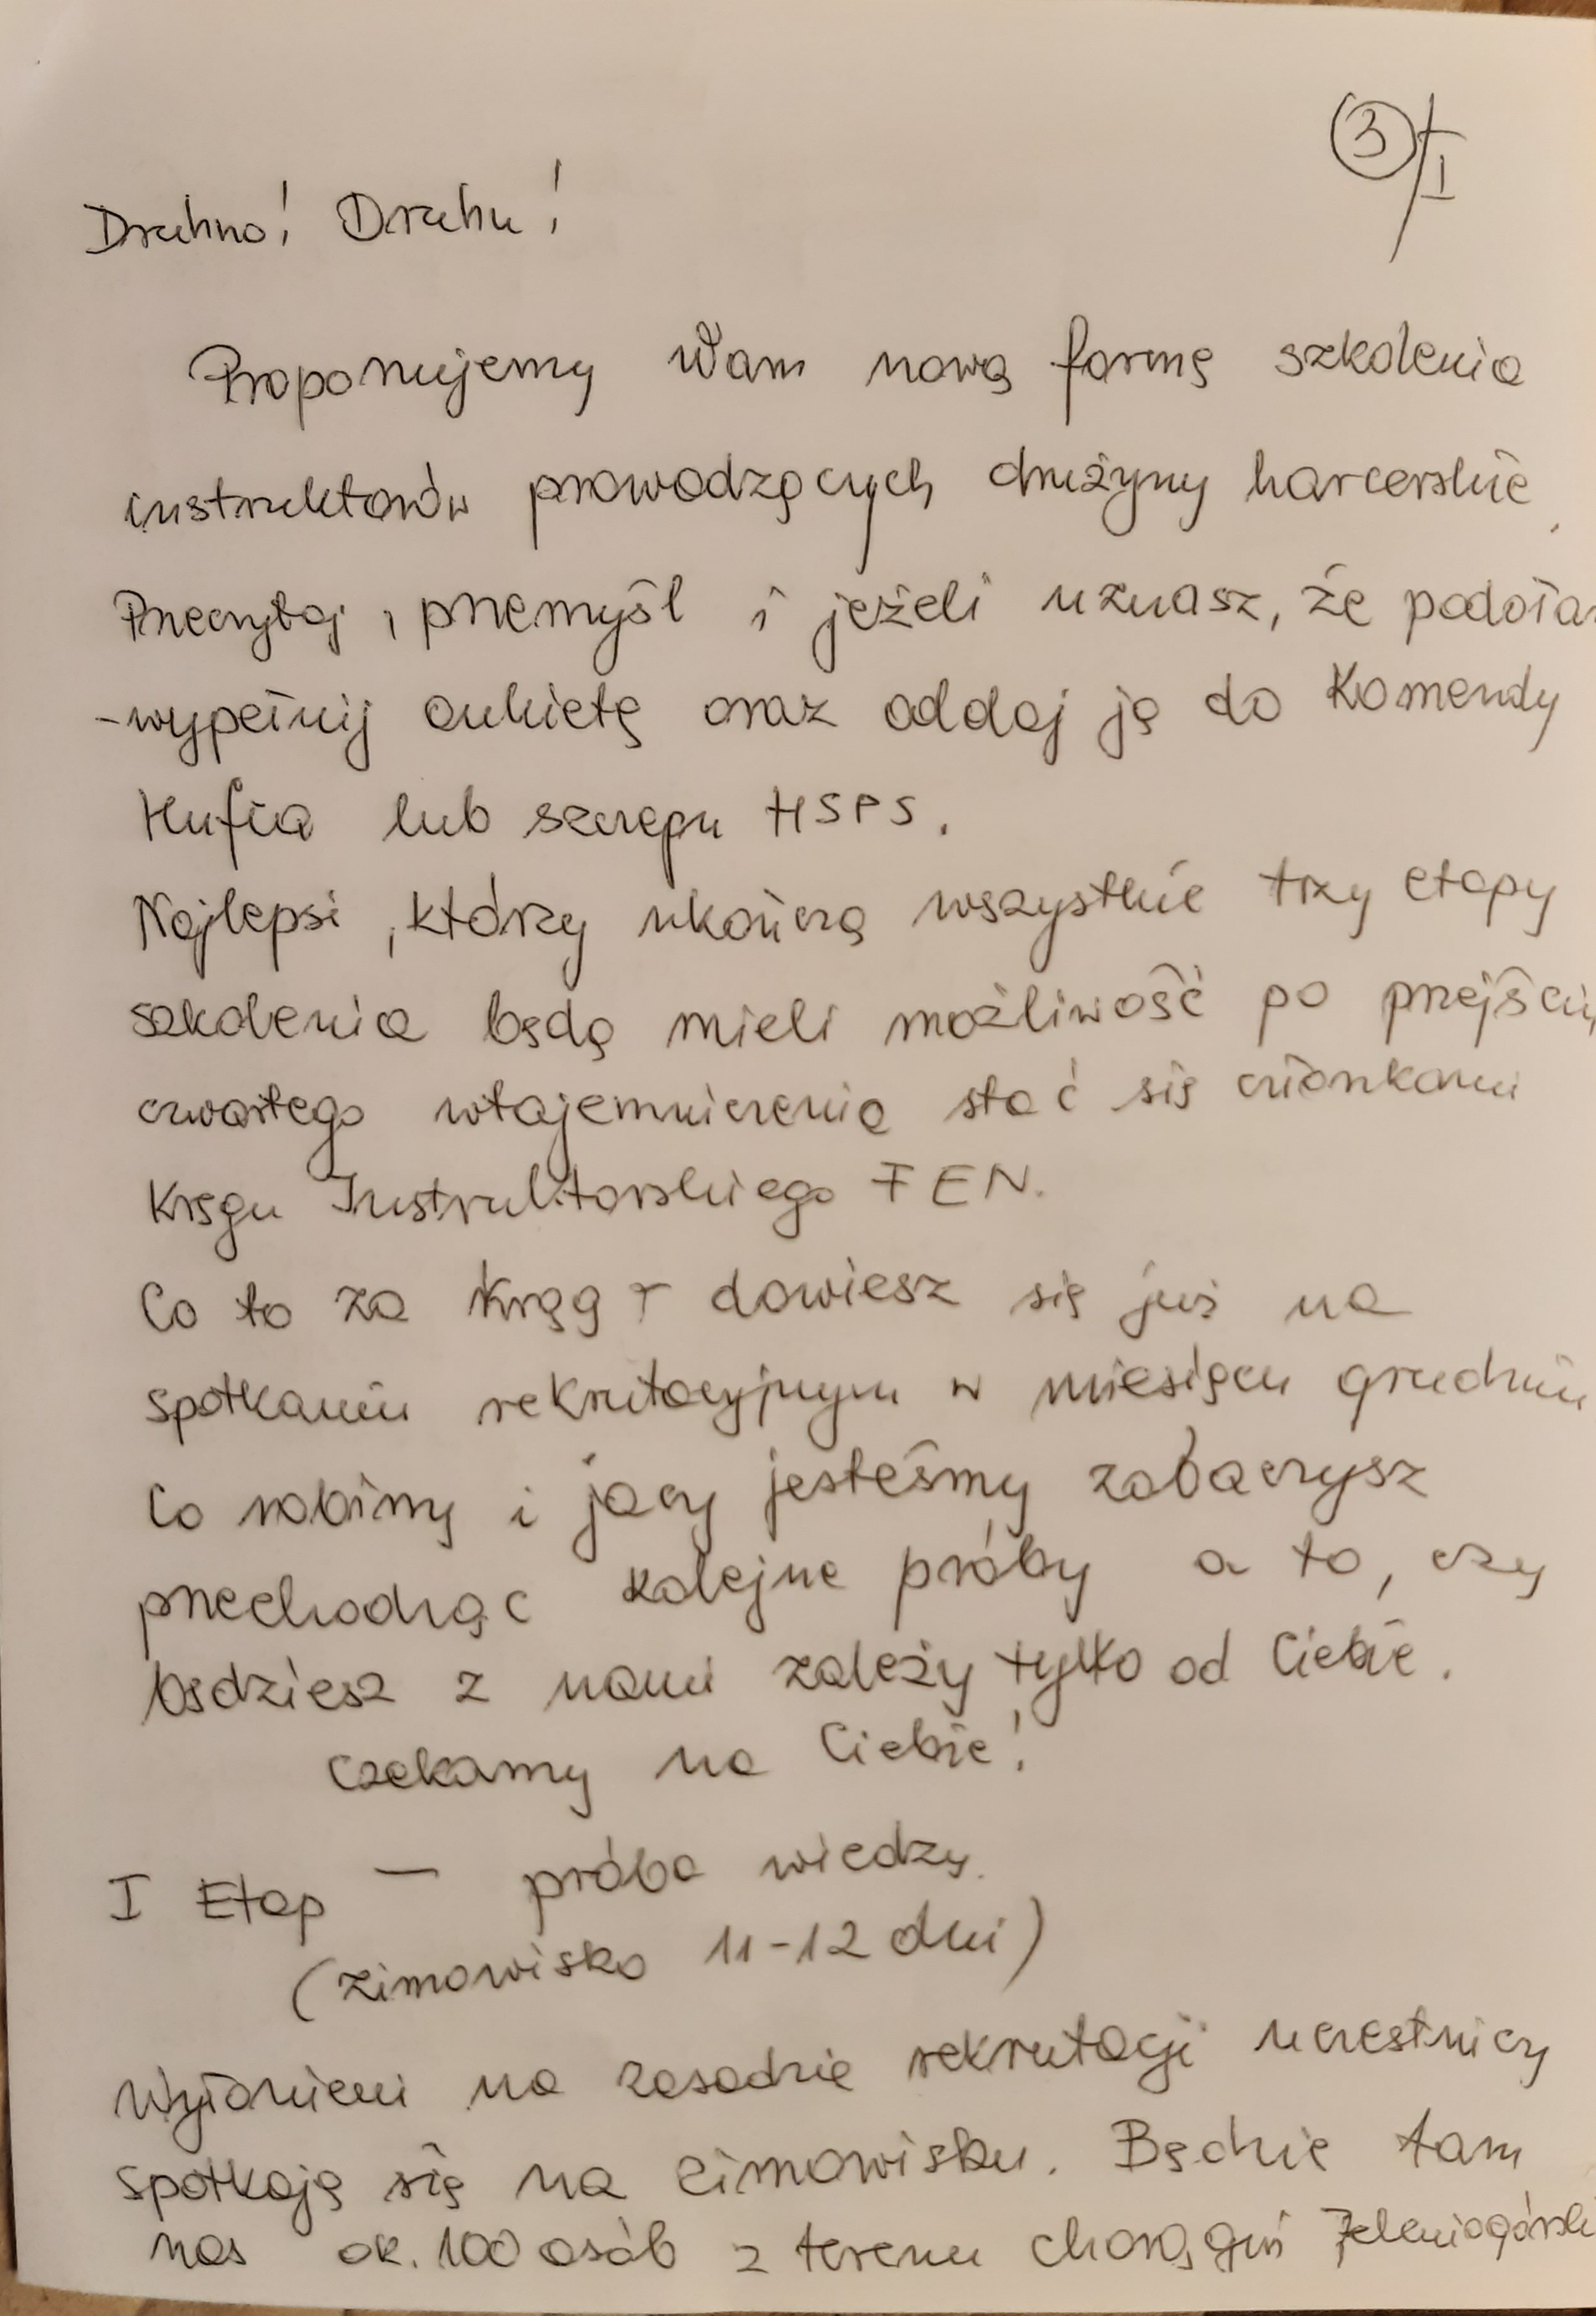 3/I
Druhno! Druhu!
Proponujemy Wam nową formę szkolenia
instruktorów prowadzących drużyny harcerskie.
Przeczytaj, przemyśl i jeżeli uznasz, że podoła
- wypełnij ankietę oraz oddaj ją do Komendy
Hufca lub szczepu HSPS.
Najlepsi, którzy ukończą wszystkie trzy etapy
szkolenia będą mieli możliwość po przejściu
czwartego wtajemniczenia stać się członkami
Kręgu Instruktorskiego FEN.
Co to za Krąg - dowiesz się już na
spotkaniu rekrutacyjnym w miesiącu grudniu
Co robimy i jacy jesteśmy zobaczysz
przechodząc kolejne próby a to, czy
będziesz z nami zależy tylko od Ciebie.
Czekamy na Ciebie!
I Etap - próba wiedzy.
(zimowisko 11-12 dni)
Wyłonieni na zasadzie rekrutacji uczestnicy
spotkają się na zimowisku. Będzie tam
nas ok. 100 osób z terenu chorągwi Jeleniogórski